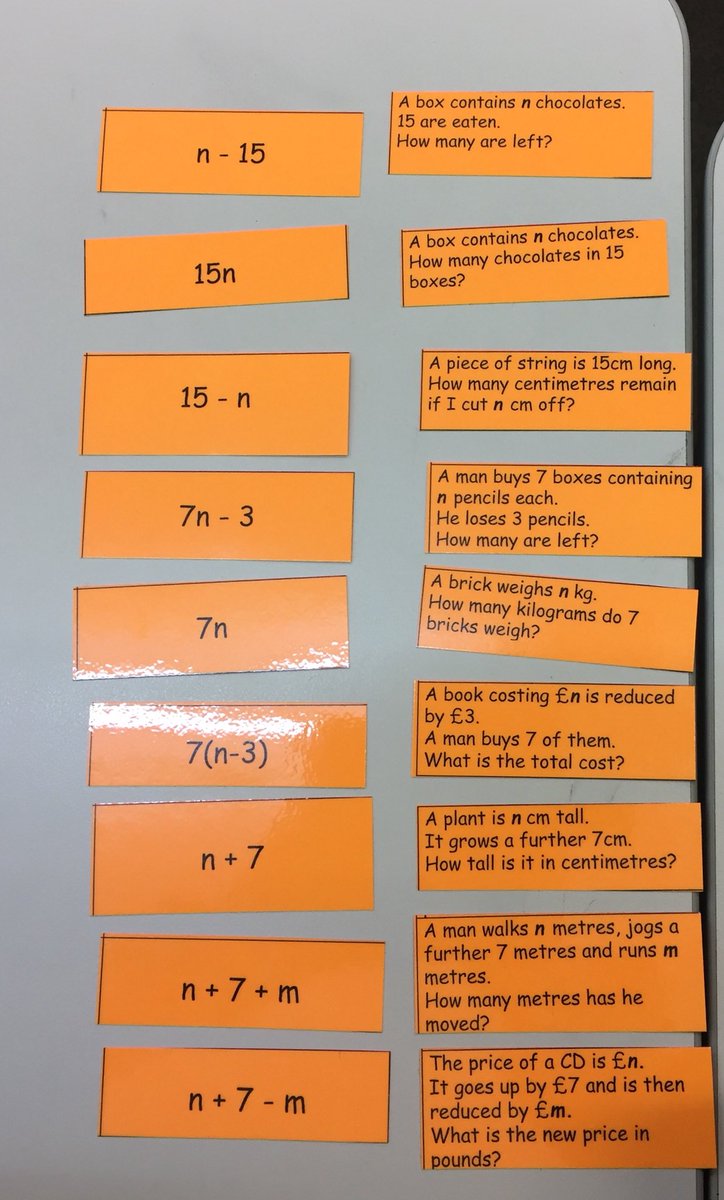 n - 15
A box contains n chocolates.
15 are eaten.
How many are left?
15n
A box contains n chocolates.
How many chocolates in 15
boxes?
15 - n
A piece of string is 15cm long.
How many centimetres remain
if I cut n cm off?
7n - 3
A man buys 7 boxes containing
n pencils each.
He loses 3 pencils.
How many are left?
7n
A brick weighs n kg.
How many kilograms do 7
bricks weigh?
7(n-3)
A book costing £n is reduced
by £3.
A man buys 7 of them.
What is the total cost?
n + 7
A plant is n cm tall.
It grows a further 7cm.
How tall is it in centimetres?
n + 7 + m
A man walks n metres, jogs a
further 7 metres and runs m
metres.
How many metres has he
moved?
n + 7 - m
The price of a CD is £n.
It goes up by £7 and is then
reduced by £m.
What is the new price in
pounds?